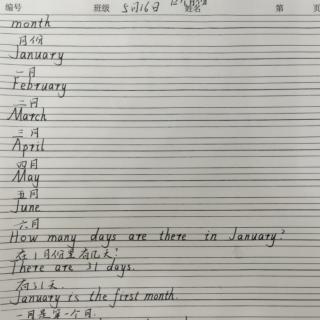 编号 班级 5月16日 姓名 第 页
month
月份
January
一月
February
二月
March
三月
April
四月
May
五月
June
六月
How many days are there in January?
在1月份里有几天?
There are 31 days.
有31天.
January is the first month.
一月是第一个月.